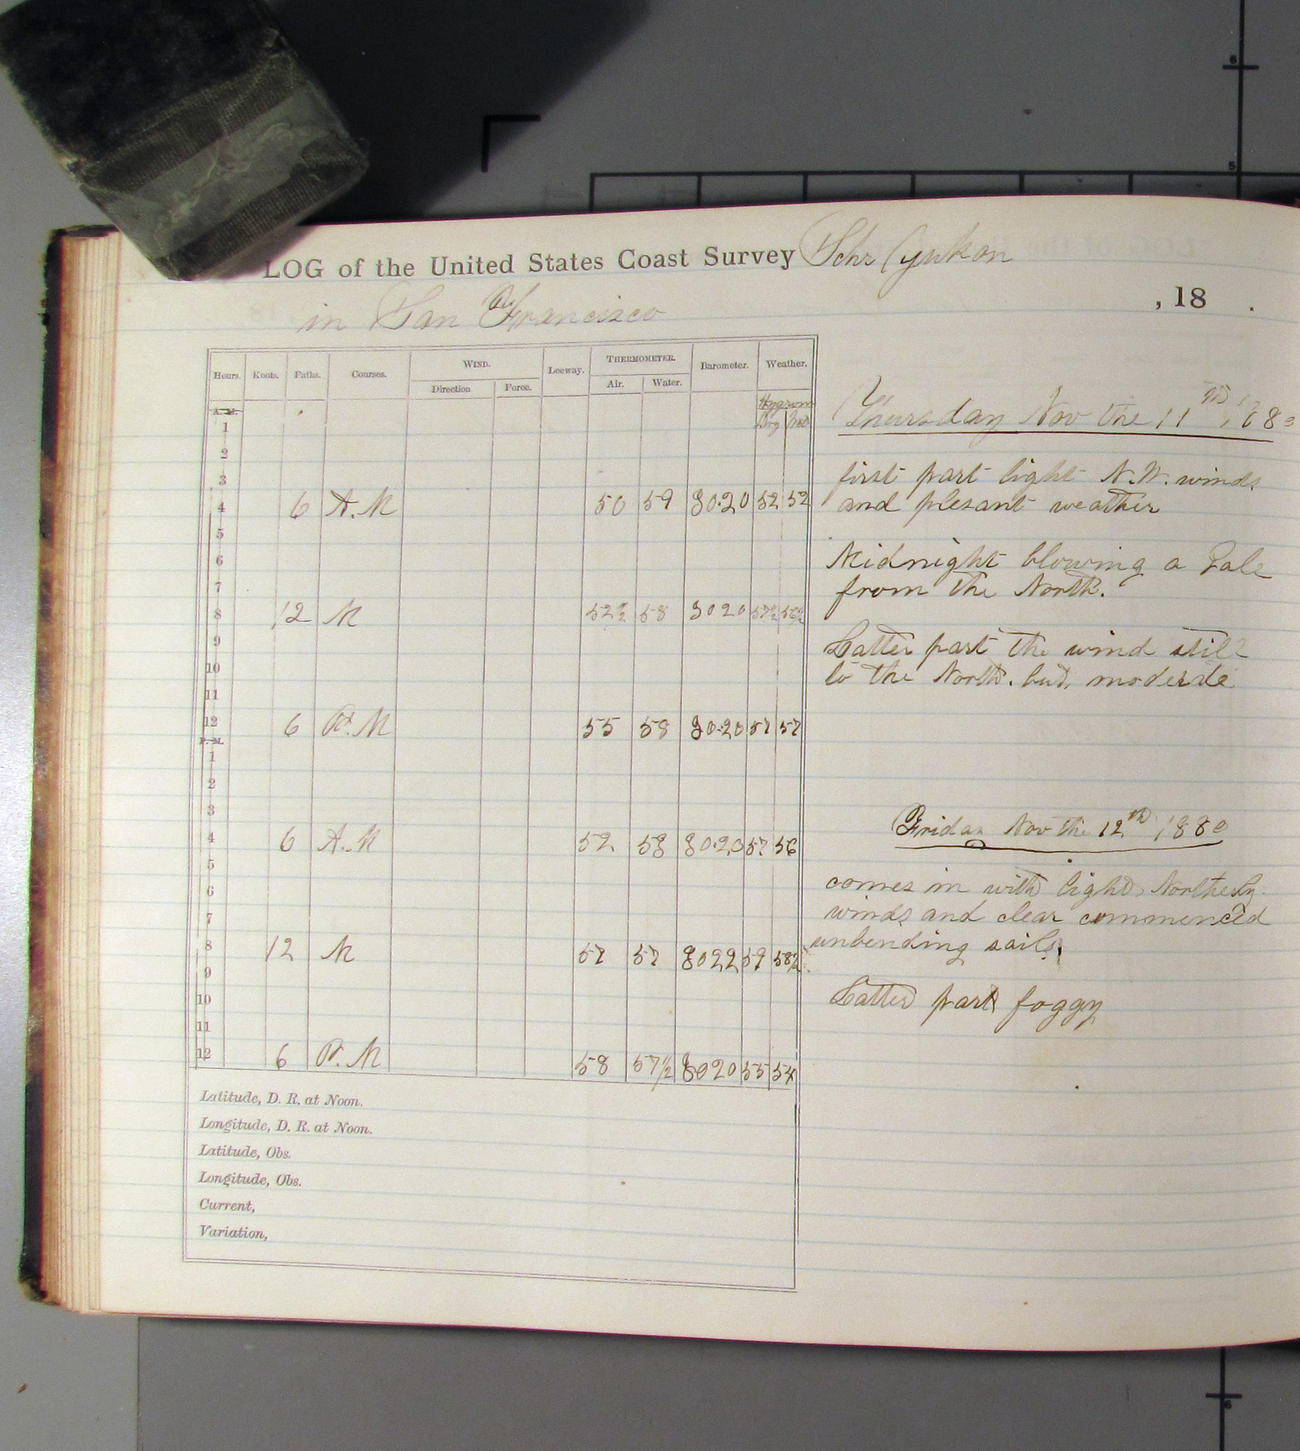 LOG of the United States Coast Survey Schr Yukon
in San Francisco , 18 .
Hours. Knots. Faths. Courses. WIND. Leeway. THERMOMETER. Barometer. Weather.
Direction Force. Air. Water.
A. M. Hygrom
1 Dry Wet
2
3
4 6 A.M 50 59 30.20 52 52
5
6
7
8 12 M 52½ 58 3020 57½
9
10
11
12 6 P.M 55 58 30.20 57 57
P. M.
1
2
3
4 6 A.M 52. 58 30.20 57 56
5
6
7
8 12 M 57 57 3022 59 58½
9
10
11
12 6 P.M 58 57½ 3020 55 54
Latitude, D. R. at Noon.
Longitude, D. R. at Noon.
Latitude, Obs.
Longitude, Obs.
Current,
Variation,
Thursday Nov the 11th 1880
first part light N.W. winds
and plesant weather
Midnight blowing a Gale
from the North.
Latter part the wind still
to the North. but moderate
Friday Nov the 12th 1880
comes in with light Northerly
winds and clear commenced
unbending sails.
Latter part foggy
6
5
6